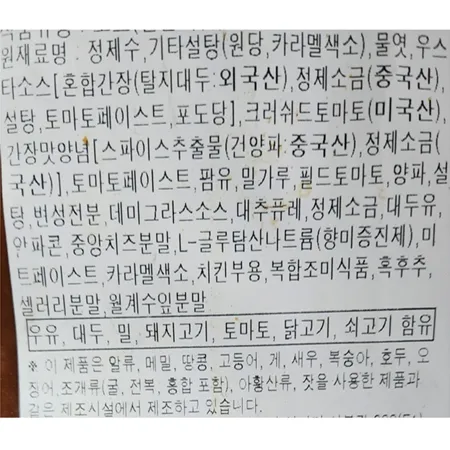 원재료명 : 정제수,기타설탕(원당,카라멜색소),물엿,우스
타소스[혼합간장(탈지대두:외국산),정제소금(중국산),
설탕,토마토페이스트,포도당],크러쉬드토마토(미국산),
간장맛양념[스파이스추출물(건양파:중국산),정제소금(
국산)],토마토페이스트,팜유,밀가루,필드토마토,양파,설
탕,변성전분,데미그라스소스,대추퓨레,정제소금,대두유,
안파콘,중앙치즈분말,L-글루탐산나트륨(향미증진제),미
트페이스트,카라멜색소,치킨부용,복합조미식품,흑후추,
셀러리분말,월계수잎분말
우유, 대두, 밀, 돼지고기, 토마토, 닭고기, 쇠고기 함유
※ 이 제품은 알류, 메밀, 땅콩, 고등어, 게, 새우, 복숭아, 호두, 오
징어,조개류(굴, 전복, 홍합 포함), 아황산류, 잣을 사용한 제품과
같은 제조시설에서 제조하고 있습니다.